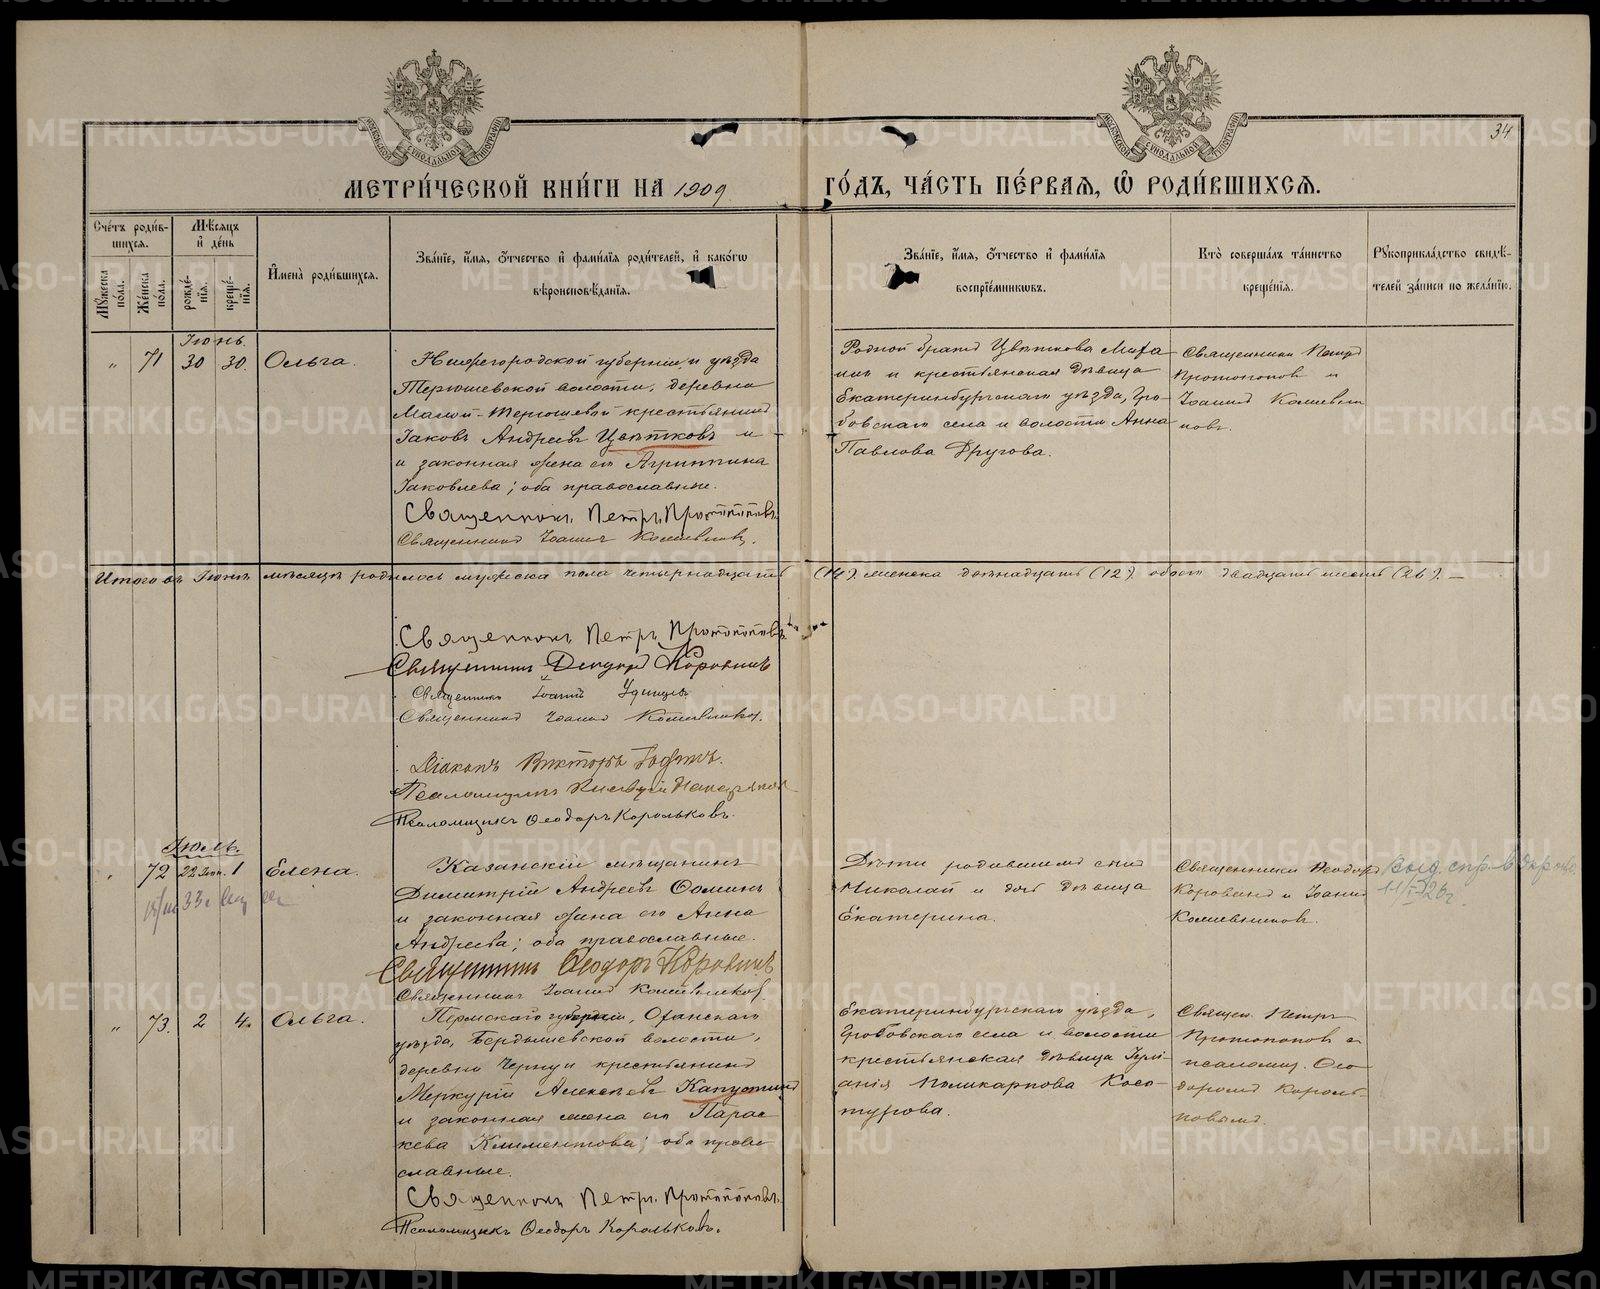 МОСКОВСКОЙ СУНОДАЛЬНОЙ ТИПОГРАФІИ
МОСКОВСКОЙ СУНОДАЛЬНОЙ ТИПОГРАФІИ
34
МЕТРИ́ЧЕСКОЙ КНИ́ГИ НА 1909
ГО́ДЪ, ЧА́СТЬ ПЕ́РВАЯ, Ѡ РОДИ́ВШИХСЯ.
Сче́тъ роди́в-
шихся.
Му́жеска по́ла.
Же́нска по́ла.
Мѣ́сяцъ
и де́нь
рожде́-
нїя.
креще́-
нїя.
Имена̀ роди́вшихся.
Зва́нїе, и́мя, ѻ́тчество и фами́лїя роди́телей, и како́гѡ
вѣроисповѣ́данїя.
Зва́нїе, и́мя, ѻ́тчество и фами́лїя
воспрїе́мникѡвъ.
Кто̀ соверша́лъ та́инство
креще́нїя.
Рукоприкла́дство свидѣ́-
телей за́писи по жела́нїю.
Іюнь.
„ 71 30 30. Ольга.
Нижегородской губерніи и уѣзда
Терюшевской волости, деревни
Малой-Терюшевой крестьянинъ
Іаковъ Андреевъ Цвѣтковъ и
и законная жена его Агриппина
Іаковлева; оба православные.
Священникъ Петръ Протопоповъ.
Священникъ Іоаннъ Кошевниковъ.
Родной братъ Цвѣткова Миха
илъ и крестьянская дѣвица
Екатеринбургскаго уѣзда, Гро-
бовскаго села и волости Анна
Павлова Другова.
Священники Петръ
Протопопов и
Іоаннъ Кошевни
ковъ.
Итого въ Іюнѣ мѣсяцѣ родилось мужеска пола четырнадцать (14). женска двѣнадцать (12) обоего двадцать шесть (26). —
Священникъ Петръ Протопоповъ.
Священникъ Ѳеодоръ Коровинъ
Священникъ Іоаннъ Удинцевъ
Священникъ Іоаннъ Кошевниковъ.
Діаконъ Викторъ
Псаломщикъ
Псаломщикъ Ѳеодоръ Корольковъ.
Іюль.
72 22 Іюн. 1 Елена.
Казанскій мѣщанинъ
Димитрій Андреевъ Ѳоминъ
и законная жена его Анна
Андреева; оба православные.
Священникъ Ѳеодоръ Коровинъ
Священникъ Іоаннъ Кошевниковъ.
Дѣти родившихъ сынъ
Николай и дочь дѣвица
Екатерина.
Священники Ѳеодоръ
Коровинъ и Іоаннъ
Кошевниковъ.
Выд. спр. в
11/I 26 г.
„ 73. 2 4. Ольга.
Пермской губерніи, Оханскаго
уѣзда, Бердышевской волости,
деревни крестьянинъ
Меркурій Алексѣевъ Капустинъ
и законная жена его Парас
кева Климентова; оба право
славные.
Священникъ Петръ Протопоповъ.
Псаломщикъ Ѳеодоръ Корольковъ.
Екатеринбургскаго уѣзда,
Гробовскаго села и волости
крестьянская дѣвица Іули-
анія Поликарпова Косо-
турова.
Священ. Петръ
Протопопов с
псаломщ. Ѳео
доромъ Король-
ковымъ.
METRIKI.GASO-URAL.RU